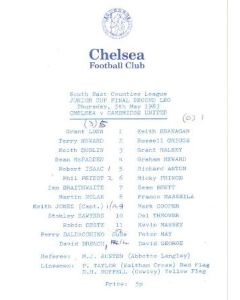 Chelsea
Football Club
South East Counties League
JUNIOR CUP FINAL SECOND LEG
Thursday, 5th May 1983
CHELSEA v CAMBRIDGE UNITED
(3) 5 (0) 1
Grant LUNN 1 Keith BRANAGAN
Terry HOWARD 2 Russell
Keith DUBLIN 3 Grant HALSEY
Sean McFADDEN 4 Graham HEWARD
Robert ISAAC 5 Richard ANTON
Phil PRIEST 6 Nicky PRINCE
Ian BRAITHWAITE 7 Sean
Martin DOLAN 8 Franco
Keith JONES (Capt.) 9 Mark COOPER
Stanley SAWYERS 10 Del THROWER
Robin BESTE 11 Kevin MASSEY
Perry BALDACCHINO Subs Peter MAY
David BREACH David GEORGE
Referee: M.J. BUNTEN (Abbotts Langley)
Linesmen: P. TAYLOR (Waltham Cross) Red Flag
(Cowley) Yellow Flag
Price: 5p